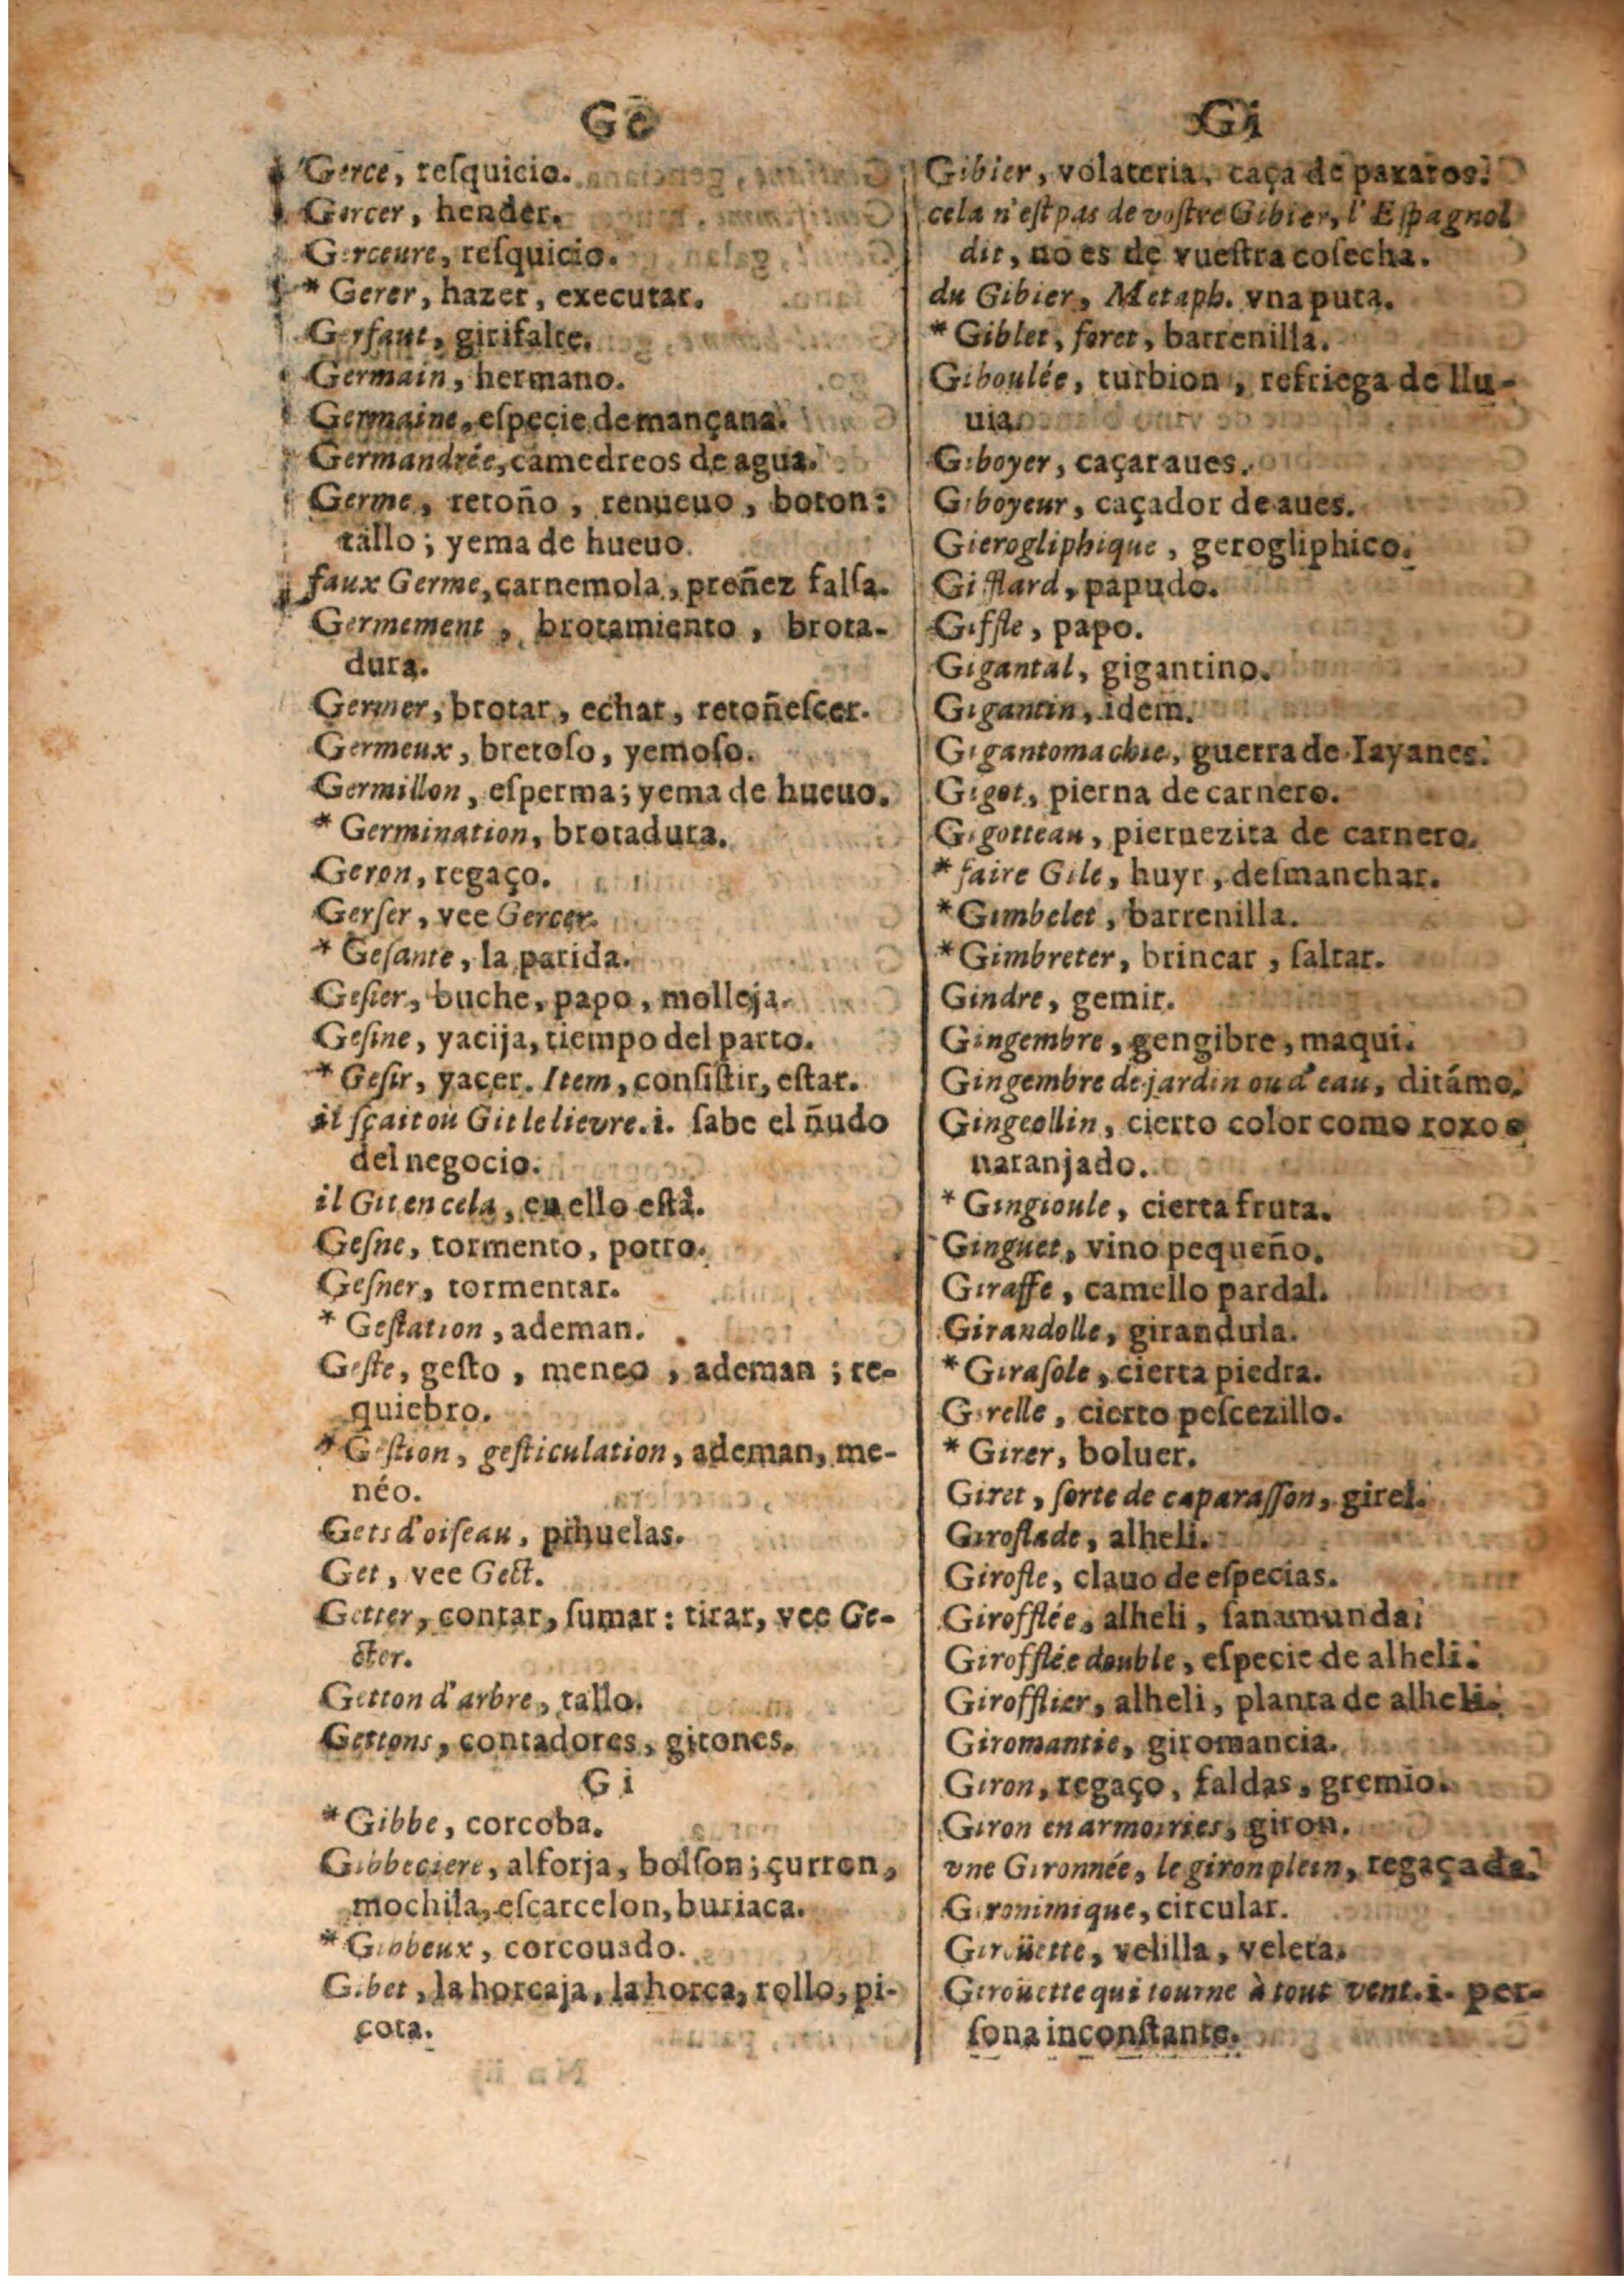 Ge
Gerce, reſquicio.
Gercer, hender.
Gerceure, reſquicio.
* Gerer, hazer, executar.
Gerfaut, girifalte.
Germain, hermano.
Germaine, eſpecie de mançana.
Germandrée, camedreos de agua.
Germe, retoño, renueuo, boton:
tallo; yema de hueuo.
faux Germe, carnemola, preñez falſa.
Germement, brotamiento, brota-
dura.
Germer, brotar, echar, retoñeſcer.
Germeux, bretoſo, yemoſo.
Germillon, eſperma; yema de hueuo.
* Germination, brotadura.
Geron, regaço.
Gerſer, vee Gercer.
* Geſante, la parida.
Geſier, buche, papo, molleja.
Geſine, yacija, tiempo del parto.
* Geſir, yacer. Item, conſiſtir, eſtar.
il ſçait où Git le lievre. i. ſabe el ñudo
del negocio.
il Git en cela, en ello eſtà.
Geſne, tormento, potro.
Geſner, tormentar.
* Geſtation, ademan.
Geſte, geſto, meneo, ademan; re-
quiebro.
* Geſtion, geſticulation, ademan, me-
néo.
Gets d'oiſeau, pihuelas.
Get, vee Gect.
Getter, contar, ſumar: tirar, vee Ge-
cter.
Getton d'arbre, tallo.
Gettons, contadores, gitones.
G i
* Gibbe, corcoba.
Gibbeciere, alforja, bolſon; çurron,
mochila, eſcarcelon, buriaca.
* Gibbeux, corcouado.
Gibet, la horcaja, la horca, rollo, pi-
cota.
Gi
Gibier, volateria, caça de paxaros.
cela n'eſt pas de voſtre Gibier, l'Eſpagnol
dit, no es de vueſtra coſecha.
du Gibier, Metaph. vna puta.
* Giblet, foret, barrenilla.
Giboulée, turbion, refriega de llu-
uia.
Giboyer, caçar aues.
Giboyeur, caçador de aues.
Gierogliphique, gerogliphico.
Gifflard, papudo.
Giffle, papo.
Gigantal, gigantino.
Gigantin, idem.
Gigantomachie, guerra de Iayanes.
Gigot, pierna de carnero.
Gigotteau, piernezita de carnero.
* faire Gile, huyr, deſmanchar.
* Gimbelet, barrenilla.
* Gimbreter, brincar, ſaltar.
Gindre, gemir.
Gingembre, gengibre, maqui.
Gingembre de jardin ou d'eau, ditámo.
Gingeollin, cierto color como roxo o
naranjado.
* Gingioule, cierta fruta.
Ginguet, vino pequeño.
Giraffe, camello pardal.
Girandolle, girandula.
* Giraſole, cierta piedra.
Girelle, cierto peſcezillo.
* Girer, boluer.
Giret, ſorte de caparaſſon, girel.
Giroflade, alheli.
Girofle, clauo de eſpecias.
Girofflée, alheli, ſanamunda;
Girofflée double, eſpecie de alheli.
Girofflier, alheli, planta de alheli.
Giromantie, giromancia.
Giron, regaço, faldas, gremio.
Giron en armoiries, giron.
vne Gironnée, le giron plein, regaçada.
Gironimique, circular.
Giroüette, velilla, veleta.
Giroüette qui tourne à tout vent. i. per-
ſona inconſtante.